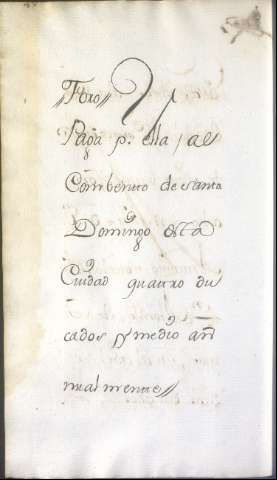 //Foro// Y
Paga p. ella, al
Combento de santo
Domingo esta
Ciudad quatro du
cados y medio an
nualmente//